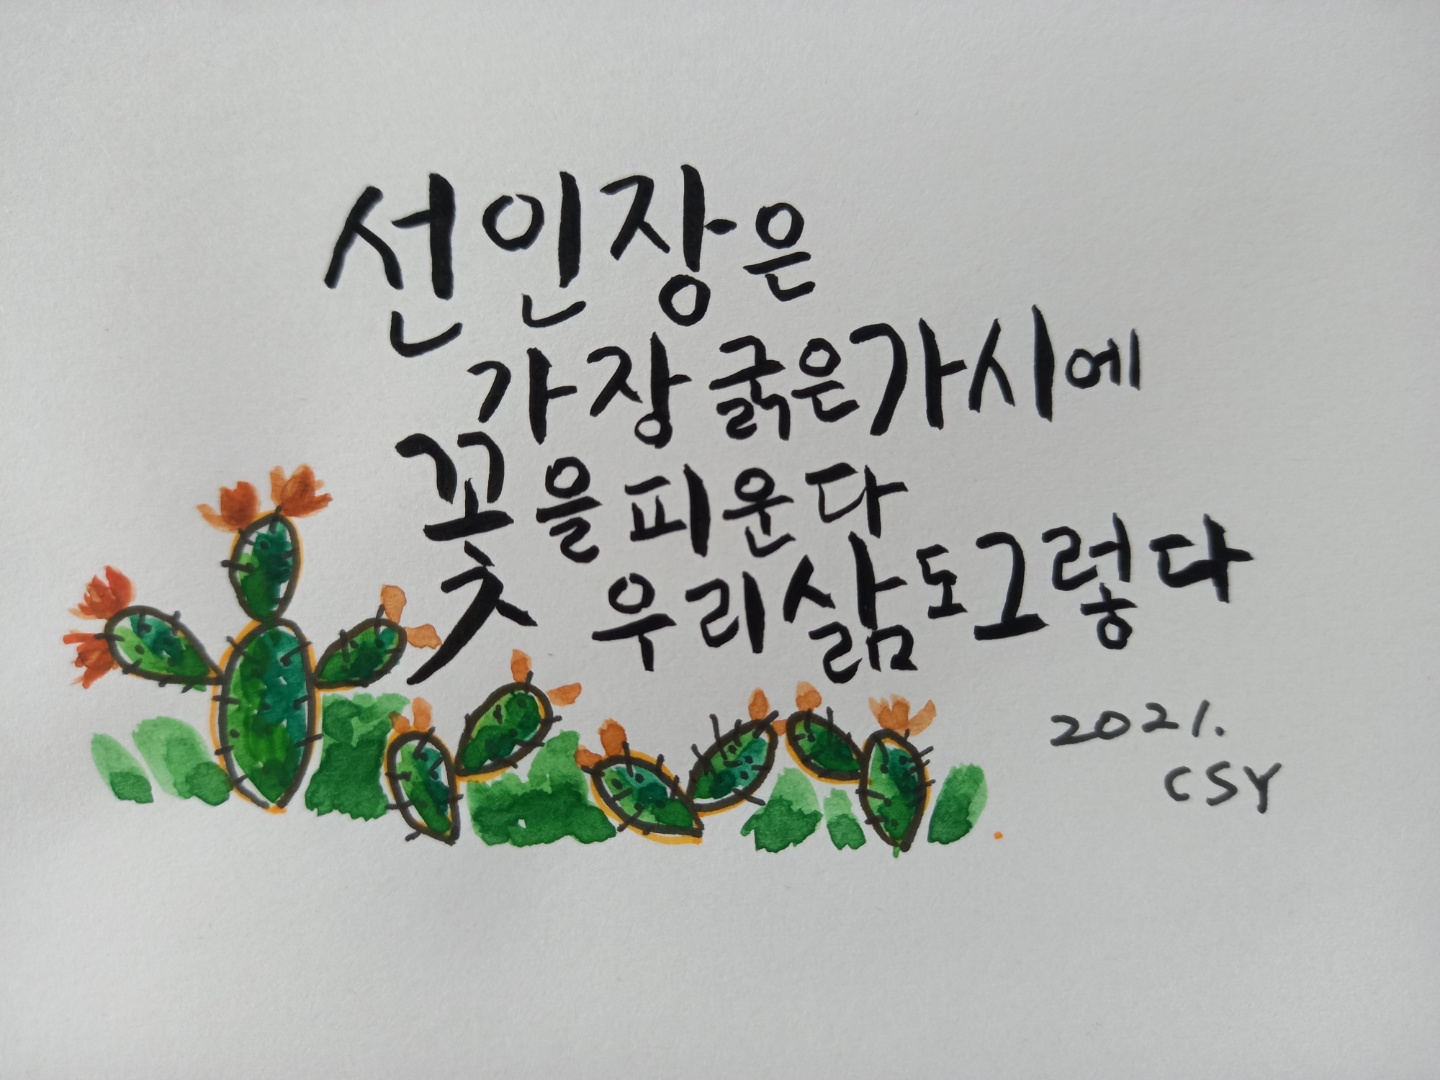 선인장은
가장 굵은 가시에
꽃을 피운다
우리 삶도 그렇다
2021.
CSY